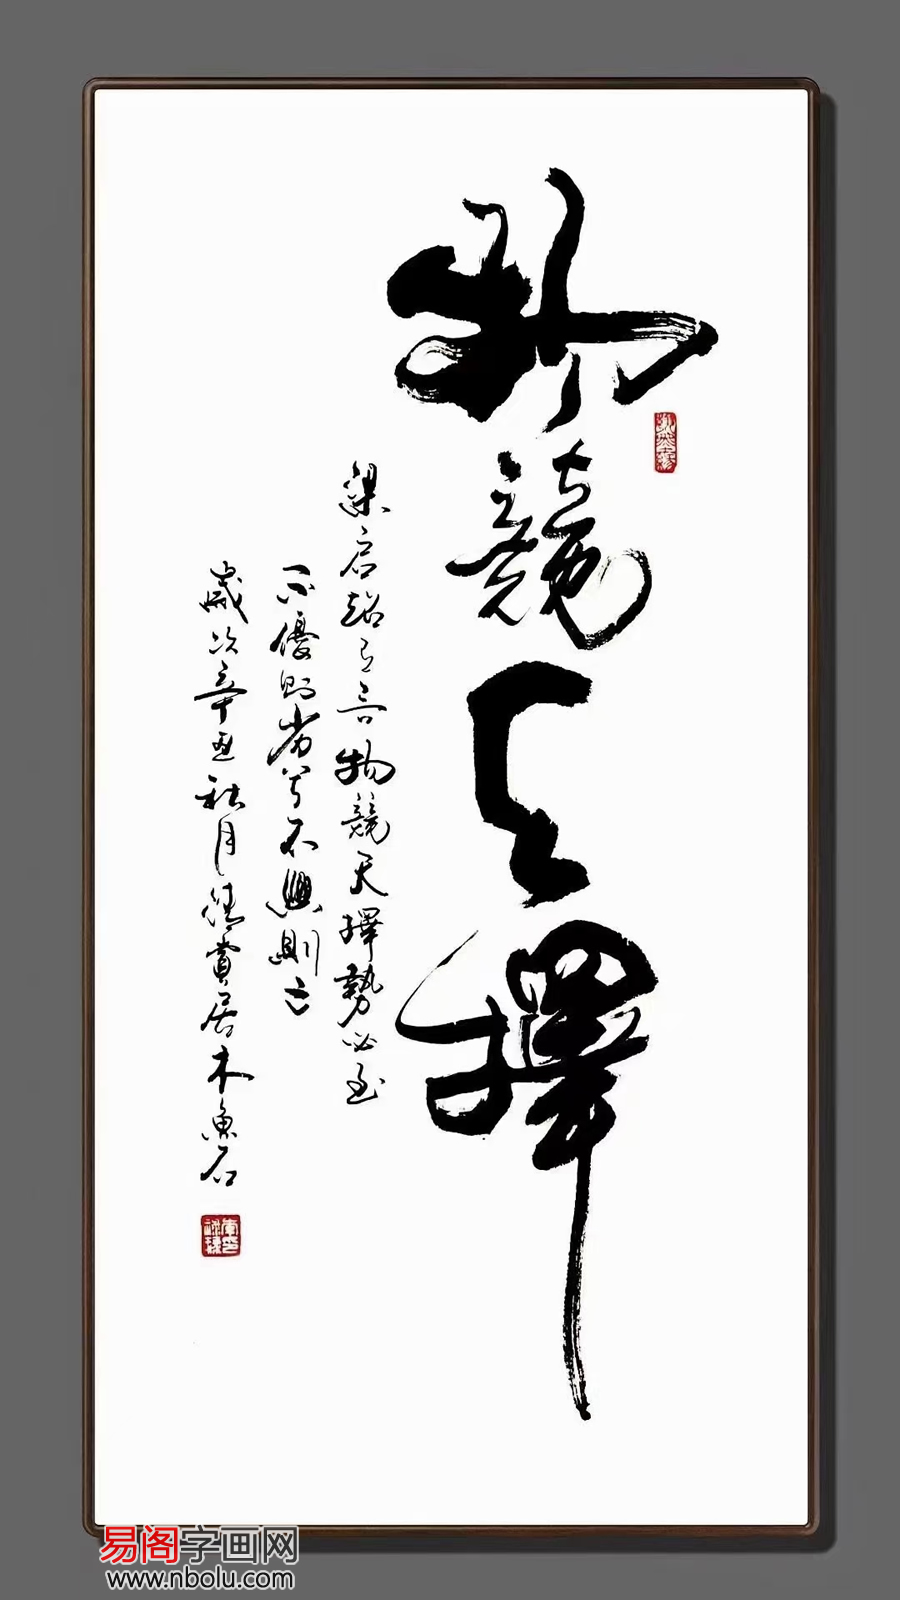 物競天擇
梁启超有言物競天擇勢必至
不優則劣兮不興則亡
歲次辛丑秋月德賞居木魚石
易阁字画网
www.nbolu.com